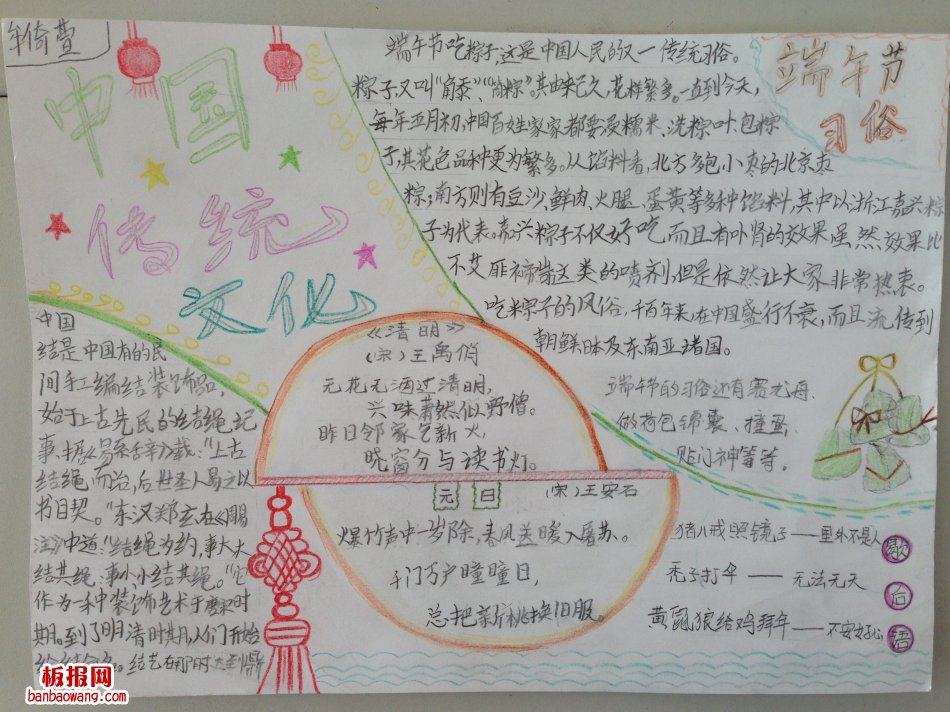 年倚萱
中国
传统
文化
端午节
习俗
端午节吃粽子,这是中国人民的又一传统习俗。
粽子又叫“角黍”、“筒粽”。其由来已久,花样繁多。一直到今天,
每年五月初,中国百姓家家都要浸糯米、洗粽叶、包粽
子,其花色品种更为繁多。从馅料看,北方多包小枣的北京枣
粽;南方则有豆沙、鲜肉、火腿、蛋黄等多种馅料,其中以浙江嘉兴粽
子为代表。嘉兴粽子不仅好吃而且有补肾的效果虽然效果比
不艾
这类的喷剂,但是依然让大家非常热衷。
吃粽子的风俗,千百年来,在中国盛行不衰,而且流传到
朝鲜日本及东南亚诸国。
端午节的习俗还有赛龙舟、
做荷包锦囊、撞蛋、
贴门神等等。
中国
结是中国有的民
间手工编结装饰品,
始于上古先民的结绳记
事、据《易系辞》载:“上古
结绳,而治,后世圣人易之以
书目契。”东汉郑玄在《
注》中道:“结绳为约,事大大
结其绳;事小小结其绳。”它
作为一种装饰艺术于唐宋时
期。到了明清时期,人们开始
给结命名。结艺在那时
《清明》
(宋)王禹俏
无花无酒过清明,
兴味萧然似野僧。
昨日邻家乞新火,
晓窗分与读书灯。
元日
(宋)王安石
爆竹声中一岁除,春风送暖入屠苏。
千门万户曈曈日,
总把新桃换旧服。
猪八戒照镜子——里外不是人
秃子打伞——无法无天
黄鼠狼给鸡拜年——不安好心
歇
后
语
板报网
banbaowang.com